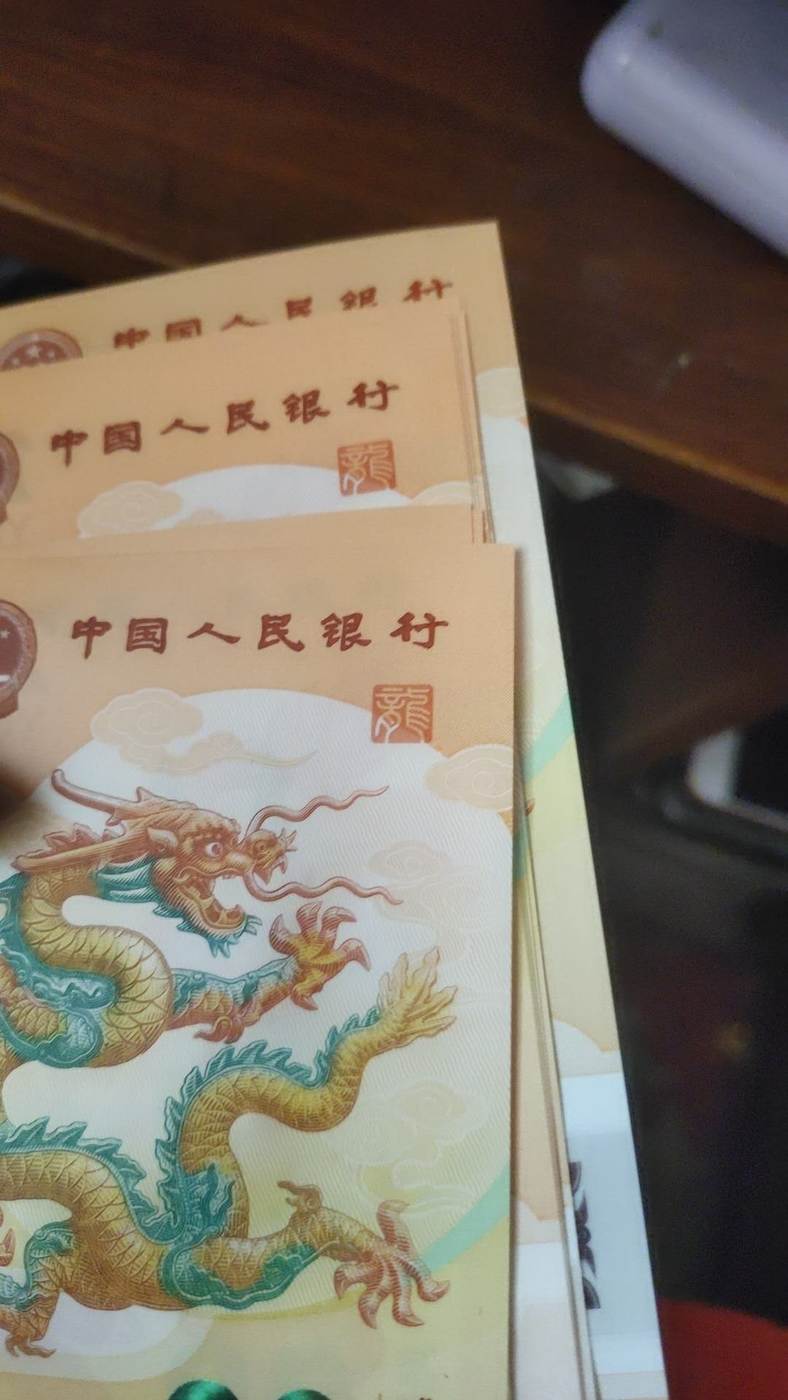 中国人民银行
中国人民银行
龍
中国人民银行
龍